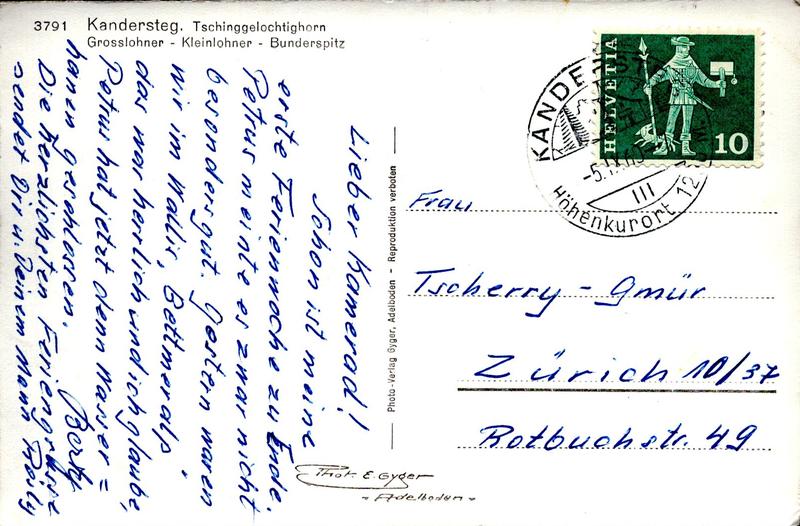 3791 Kandersteg. Tschinggelochtighorn
Grosslohner - Kleinlohner - Bunderspitz
Lieber Kamerad!
Schon ist meine
erste Ferienwoche zu Ende.
Petrus meinte es zwar nicht
besonders gut. Gestern waren
wir im Wallis, Bettmeralp
das war herrlich und ich glaube,
Petrus hat jetzt denn Wasser=
hanen geschlossen.
Die herzlichsten Feriengrüsse
sendet Dir u. Deinem Mann
Photo-Verlag Gyger, Adelboden - Reproduktion verboten
Phot. E. Gyger
- Adelboden -
HELVETIA
10
KANDERSTEG
-5.IX.
III
Höhenkurort 12
Frau
Tscherry-Gmür
Zürich 10/37
Rotbuchstr. 49